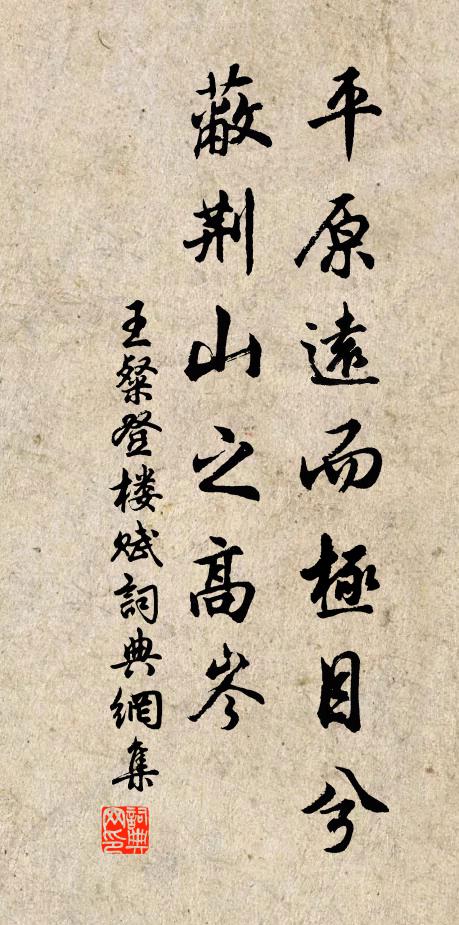 平原遠而極目兮
蔽荆山之高岑
王粲登楼赋詞典網集
詞典网印